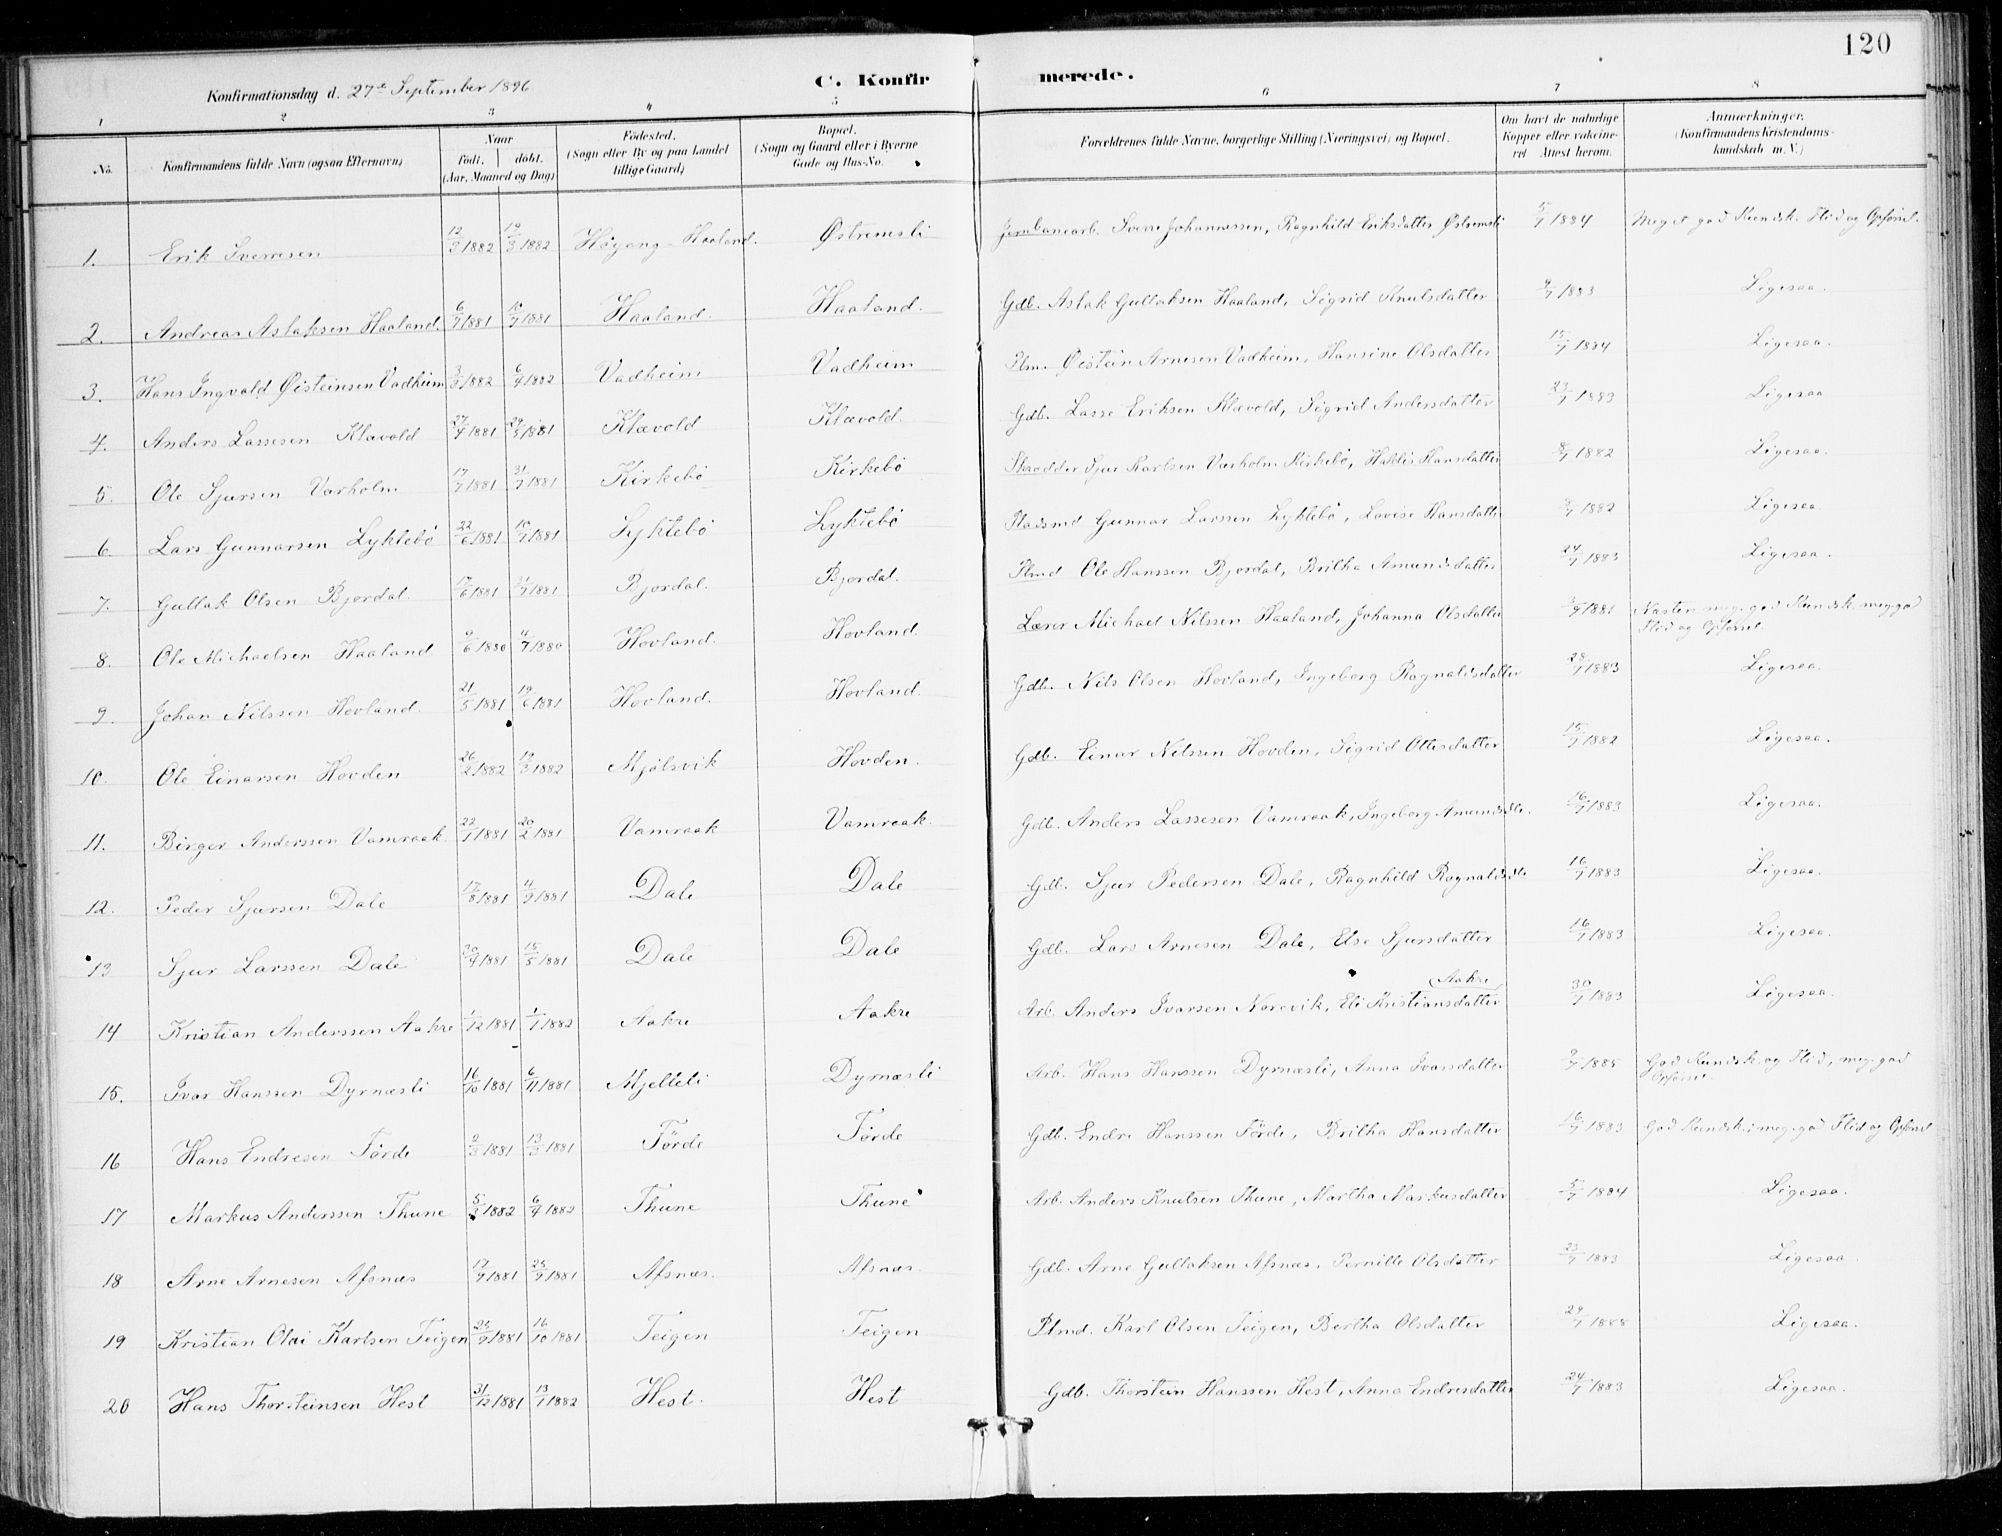 120
C. Konfirmerede.
Konfirmationsdag d. 27de September 1896.
1 2 3 4 5 6 7 8
No. Konfirmandens fulde Navn (ogsaa Efternavn) Naar født, døbt. (Aar, Maaned og Dag) Fødested. (Sogn eller By og paa Landet tillige Gaard) Bopæl. (Sogn og Gaard eller i Byerne Gade og Hus-No. Forældrenes fulde Navne, borgerlige Stilling (Næringsvei) og Bopæl. Om havt de naturlige Kopper eller vakcineret Attest herom. Anmærkninger. (Konfirmandens Kristendomskundskab m. V.)
1. Erik Sverresen 12/3 1882 19/3 1882 Høyang-Haaland. Østremsli Jernbanearb. Sverre Johannessen, Ragnhild Eriksdatter Østremsli 5/7 1884 Meget god Kundsk. Flid og Opførsel.
2. Andreas Aslaksen Haaland. 6/7 1881 10/7 1881 Haaland. Haaland. Gdb. Aslak Gullaksen Haaland, Sigrid Knutsdatter 9/7 1883 Ligesaa.
3. Hans Ingvald Øisteinsen Vadheim 3/3 1882 6/4 1882 Vadheim Vadheim Plm. Øistein Arnesen Vadheim, Hansine Olsdatter 15/7 1884 Ligesaa.
4. Anders Lassesen Klævold 27/4 1881 29/5 1881 Klævold Klævold. Gdb. Lasse Eriksen Klævold, Sigrid Andersdatter 23/7 1883 Ligesaa
5. Ole Sjursen Varholm 17/7 1881 31/7 1881 Kirkebø Kirkebø Skrædder Sjur Karlsen Værholm Kirkebø, Hansdatter 8/7 1882 Ligesaa.
6. Lars Gunnarsen Lyktebø 22/6 1881 10/7 1881 Lyktebø Lyktebø Pladsmd Gunnar Larssen Lyktebø, Lovise Hansdatter 8/7 1882 Ligesaa.
7. Gullak Olsen Bjordal. 17/6 1881 /7 1881 Bjordal. Bjordal. Plmd Ole Hanssen Bjordal, Britha Amundsdatter 24/7 1883 Ligesaa.
8. Ole Michaelsen Haaland 9/6 1880 4/7 1880 Hovland. Hovland. Lærer Michael Nilssen Haaland, Johanna Olsdatter /9 1881 Næsten meg. god Kundsk. meg. god
Flid og Opførsel.
9. Johan Nilssen Hovland. 21/5 1881 19/6 1881 Hovland. Hovland. Gdb. Nils Olsen Hovland, Ingeborg Ragnaldsdatter 28/7 1883 Ligesaa.
10. Ole Einarsen Hovden 26/2 1882 19/3 1882 Mjølsvik Hovden. Gdb. Einar Nilssen Hovden, Sigrid Ottesdatter 15/7 1882 Ligesaa.
11. Birger Anderssen Vamraak 22/1 1881 20/2 1881 Vamraak Vamraak. Gdb. Anders Lassesen Vamraak, Ingeborg Amundsdtr. 16/7 1883 Ligesaa.
12. Peder Sjursen Dale 17/8 1881 4/9 1881 Dale Dale Gdb. Sjur Pedersen Dale, Ragnhild Ragnaldsdtr 16/7 1883 Ligesaa.
13 Sjur Larssen Dale 20/4 1881 15/5 1881 Dale Dale Gdb. Lars Arnesen Dale, Else Sjursdatter 16/7 1883 Ligesaa.
Aakre
14 Kristian Anderssen Aakre 1/12 1881 1/1 1882 Aakre Aakre Arb. Anders Ivarsen Norevik, Eli Kristiansdatter 30/7 1883 Ligesaa.
15. Ivar Hanssen Dyrnæsli 16/10 1881 6/11 1881 Mjelteli Dyrnæsli Arb. Hans Hanssen Dyrnæsli, Anna Ivarsdatter 9/7 1885 God Kundsk. og Flid, meg. god
Opførsel.
16 Hans Endresen Førde 9/2 1881 13/3 1881 Førde Førde Gdb. Endre Hanssen Førde, Britha Hansdatter 16/7 1883 God Kundsk. meg. god Flid og Opførsel
17 Markus Anderssen Thune 5/3 1882 6/4 1882 Thune Thune Arb. Anders Knutsen Thune, Martha Markusdatter 5/7 1884 Ligesaa.
18 Arne Arnesen Afsnæs 17/9 1881 25/9 1881 Afsnæs. Afsnæs. Gdb. Arne Gullaksen Afsnæs, Pernille Olsdatter 23/7 1883 Ligesaa.
19 Kristian Olai Karlsen Teigen 25/9 1881 16/10 1881 Teigen Teigen Plmd. Karl Olsen Teigen, Bertha Olsdatter 29/7 1888 Ligesaa.
20 Hans Thorsteinsen Hest 31/12 1881 13/1 1882 Hest. Hest Gdb. Thorstein Hanssen Hest, Anna Endresdatter 24/7 1883 Ligesaa.